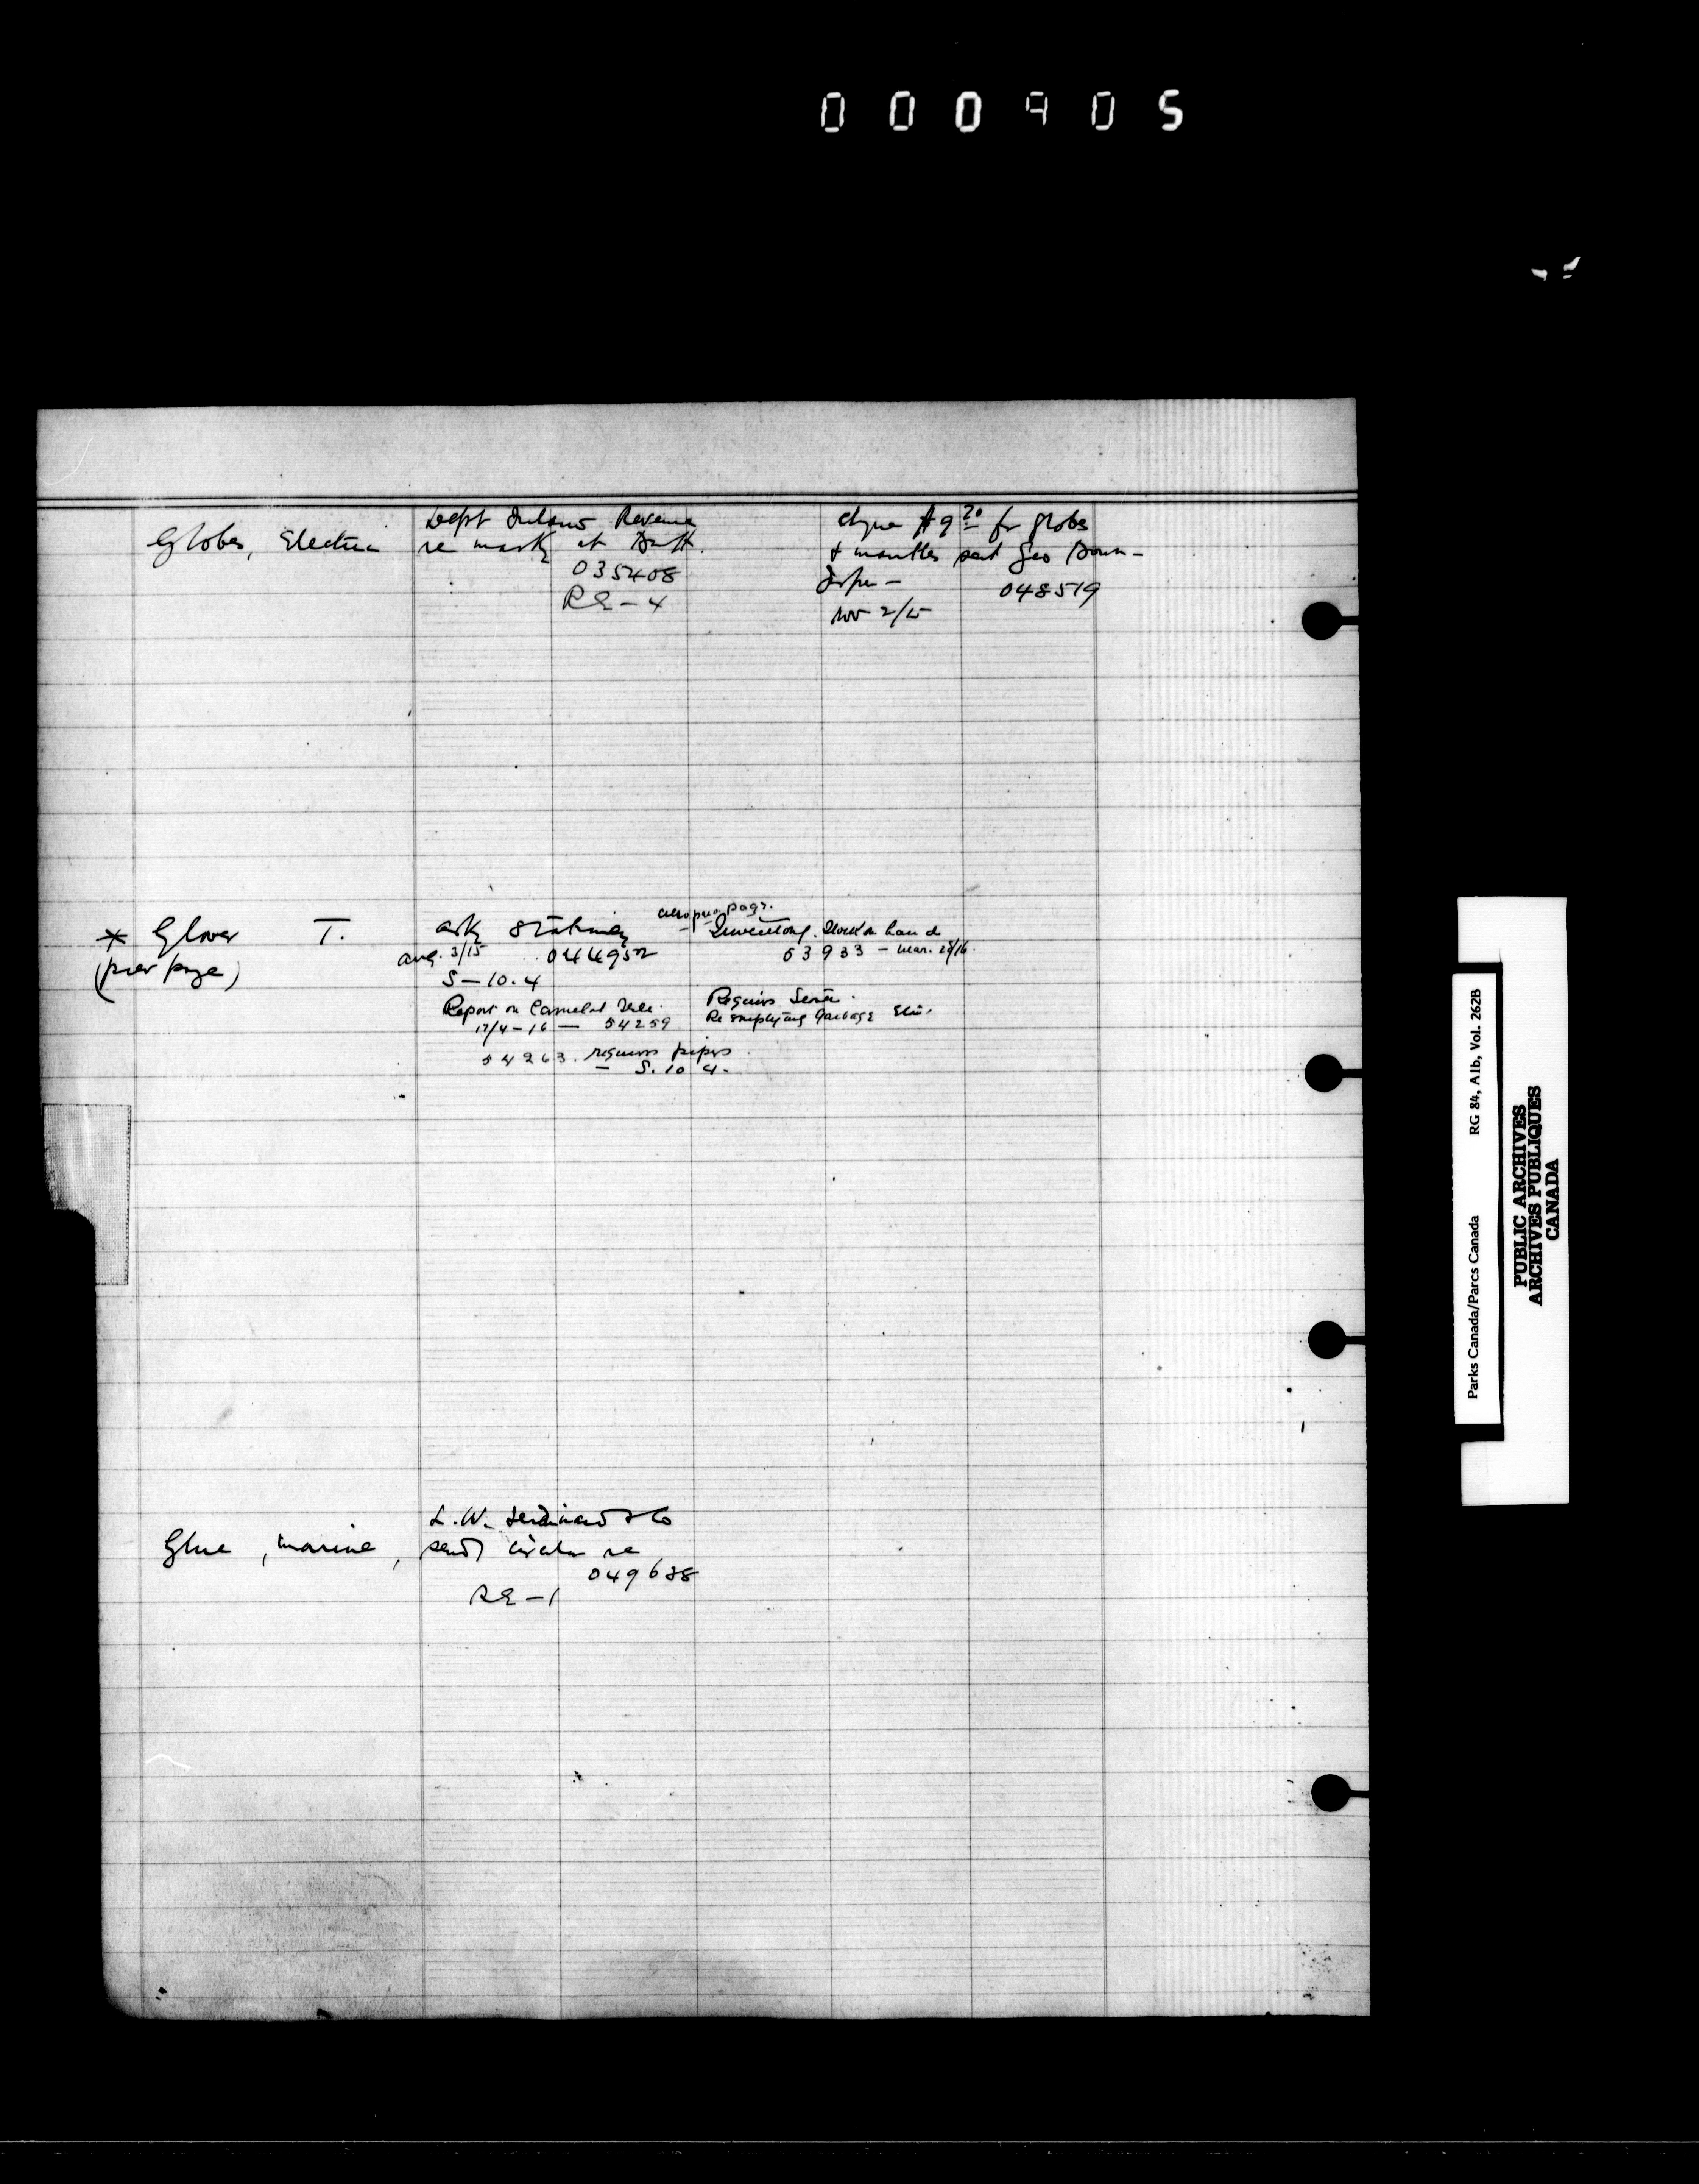 000905
Globes, Electric
Dept Inland Revenue
re marking at Banff.
035408
RE-4
chque $9 20 for globes
& mantles sent Geo Brown-
Jasper -
Nov 2/15
048519
* Glover T.
(prev page)
asks Stationery
Aug. 3/15 044952
S-10.4
Report on Camelot
17/4-16 — 54259
54263. requires pipes
— S. 10 4.
also prev page.
- Inventory. Stock on hand
53933 - Mar. 28/16.
Requires Senter.
Re emptying Garbage
Glue, marine,
L. W. Ferdinand & Co
send circular re
049638
RE-1
Parks Canada/Parcs Canada RG 84, A1b, Vol. 262B
PUBLIC ARCHIVES
ARCHIVES PUBLIQUES
CANADA